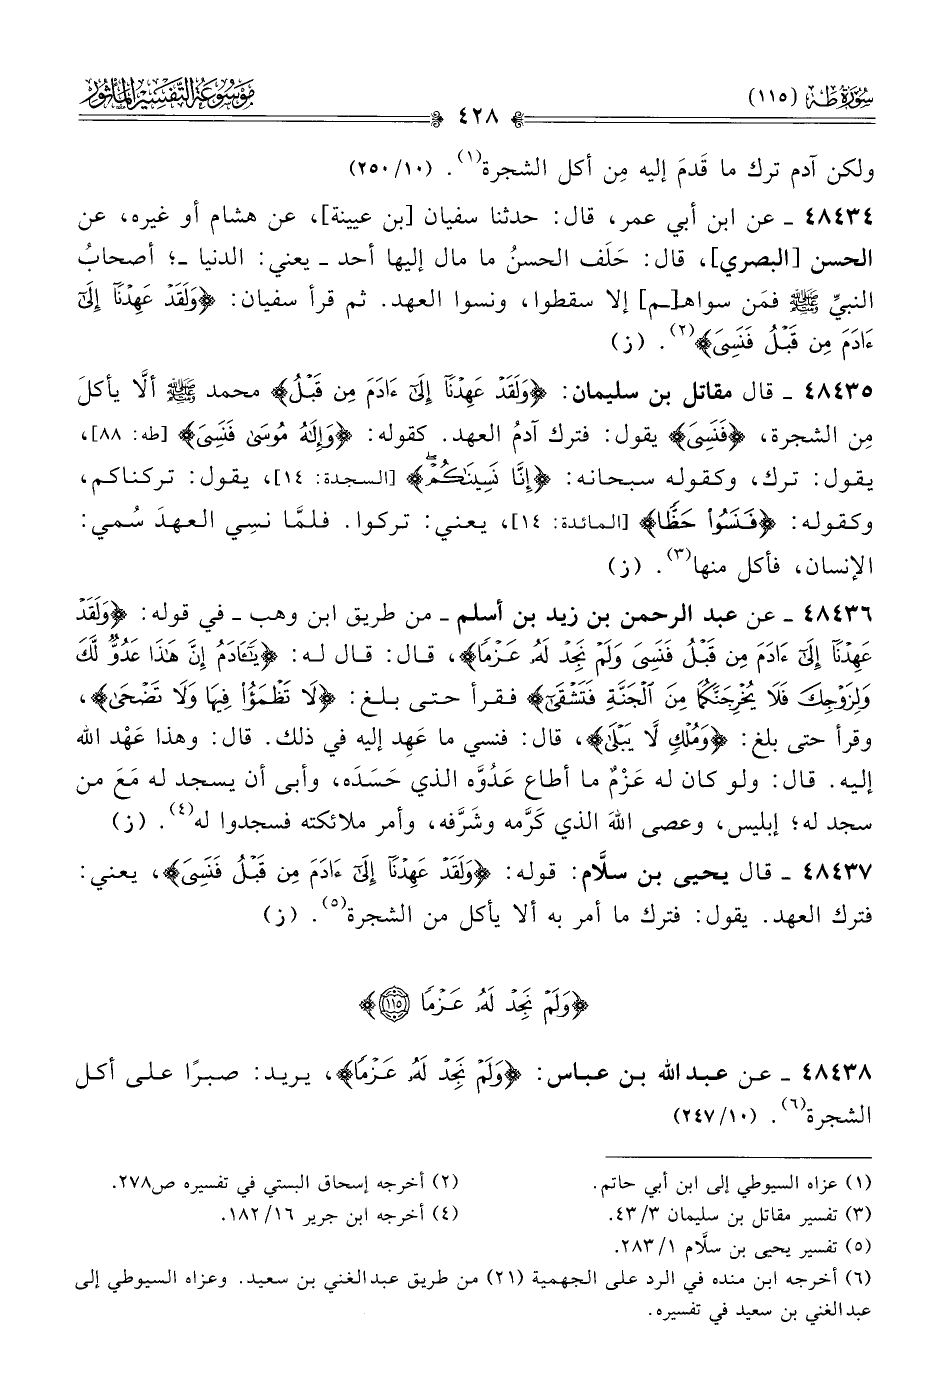 سُورَةُ طه (١١٥)
٤٢٨
مَوْسُوعَةُ التَّفْسِيرِ المَأْثُور
ولكن آدم ترك ما قَدمَ إليه مِن أكل الشجرة(١). (١٠/ ٢٥٠)
٤٨٤٣٤ ـ عن ابن أبي عمر، قال: حدثنا سفيان [بن عيينة]، عن هشام أو غيره، عن
الحسن [البصري]، قال: حَلَف الحسنُ ما مال إليها أحد ـ يعني: الدنيا ـ؛ أصحابُ
النبيِّ ﷺ فمَن سواهـ[ـم] إلا سقطوا، ونسوا العهد. ثم قرأ سفيان: ﴿وَلَقَدْ عَهِدْنَآ إِلَىٰٓ
ءَادَمَ مِن قَبْلُ فَنَسِىَ﴾(٢). (ز)
٤٨٤٣٥ ـ قال مقاتل بن سليمان: ﴿وَلَقَدْ عَهِدْنَآ إِلَىٰٓ ءَادَمَ مِن قَبْلُ﴾ محمد ﷺ ألَّا يأكلَ
مِن الشجرة، ﴿فَنَسِىَ﴾ يقول: فترك آدمُ العهد. كقوله: ﴿وَإِلَٰهُ مُوسَىٰ فَنَسِىَ﴾ [طه: ٨٨]،
يقول: ترك، وكقوله سبحانه: ﴿إِنَّا نَسِينَٰكُمْ﴾ [السجدة: ١٤]، يقول: تركناكم،
وكقوله: ﴿فَنَسُوا۟ حَظًّا﴾ [المائدة: ١٤]، يعني: تركوا. فلمَّا نسِي العهدَ سُمي:
الإنسان، فأكل منها(٣). (ز)
٤٨٤٣٦ ـ عن عبد الرحمن بن زيد بن أسلم ـ من طريق ابن وهب ـ في قوله: ﴿وَلَقَدْ
عَهِدْنَآ إِلَىٰٓ ءَادَمَ مِن قَبْلُ فَنَسِىَ وَلَمْ نَجِدْ لَهُۥ عَزْمًا﴾، قال: قال له: ﴿يَٰٓـَٔادَمُ إِنَّ هَٰذَا عَدُوٌّ لَّكَ
وَلِزَوْجِكَ فَلَا يُخْرِجَنَّكُمَا مِنَ ٱلْجَنَّةِ فَتَشْقَىٰٓ﴾ فقرأ حتى بلغ: ﴿لَا تَظْمَؤُا۟ فِيهَا وَلَا تَضْحَىٰ﴾،
وقرأ حتى بلغ: ﴿وَمُلْكٍ لَّا يَبْلَىٰ﴾، قال: فنسي ما عَهِد إليه في ذلك. قال: وهذا عَهْد الله
إليه. قال: ولو كان له عَزْمٌ ما أطاع عَدُوَّه الذي حَسَدَه، وأبى أن يسجد له مَعَ من
سجد له؛ إبليس، وعصى اللهَ الذي كَرَّمه وشَرَّفه، وأمر ملائكته فسجدوا له(٤). (ز)
٤٨٤٣٧ ـ قال يحيى بن سلَّام: قوله: ﴿وَلَقَدْ عَهِدْنَآ إِلَىٰٓ ءَادَمَ مِن قَبْلُ فَنَسِىَ﴾، يعني:
فترك العهد. يقول: فترك ما أمر به ألا يأكل من الشجرة(٥). (ز)
﴿وَلَمْ نَجِدْ لَهُۥ عَزْمًا ١١٥﴾
٤٨٤٣٨ ـ عن عبد الله بن عباس: ﴿وَلَمْ نَجِدْ لَهُۥ عَزْمًا﴾، يريد: صبرًا على أكل
الشجرة(٦). (١٠/ ٢٤٧)
(١) عزاه السيوطي إلى ابن أبي حاتم.
(٢) أخرجه إسحاق البستي في تفسيره ص٢٧٨.
(٣) تفسير مقاتل بن سليمان ٣/ ٤٣.
(٤) أخرجه ابن جرير ١٦/ ١٨٢.
(٥) تفسير يحيى بن سلَّام ١/ ٢٨٣.
(٦) أخرجه ابن منده في الرد على الجهمية (٢١) من طريق عبدالغني بن سعيد. وعزاه السيوطي إلى
عبدالغني بن سعيد في تفسيره.